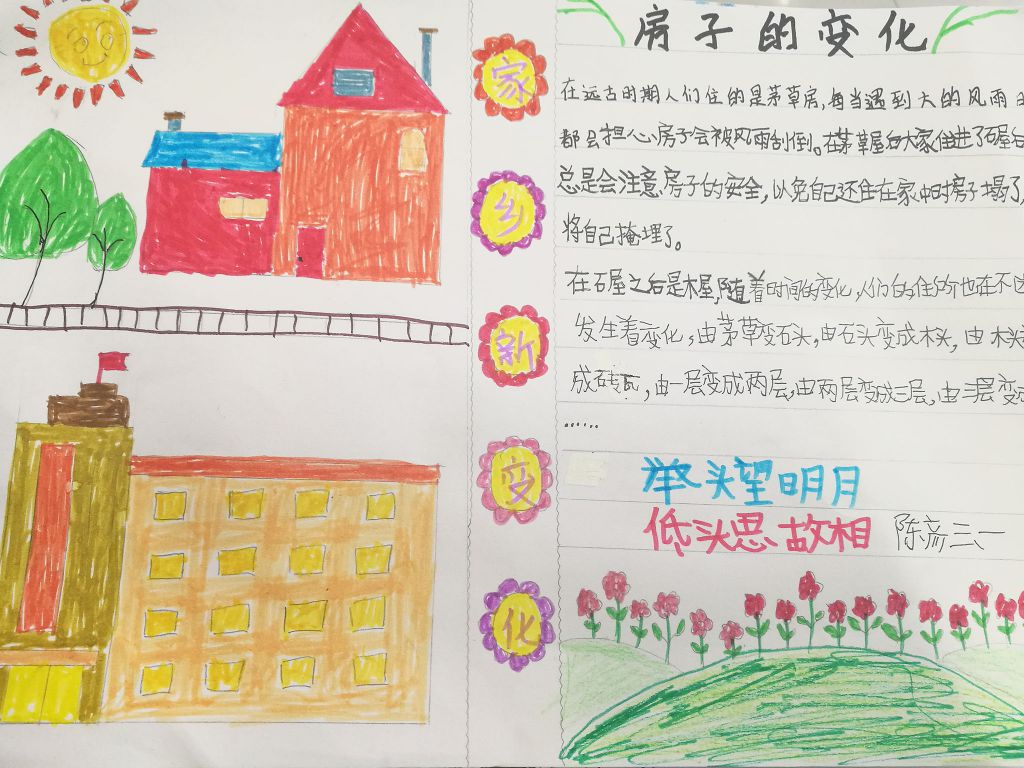 家
乡
新
变
化
房子的变化
在远古时期人们住的是茅草房,每当遇到大的风雨
都会担心房子会被风雨刮倒。在茅草屋后大家住进了石屋
总是会注意房子的安全,以免自己还住在家中时房子塌了,
将自己掩埋了。
在石屋之后是木屋,随着时间的变化,人们的住所也在不
发生着变化,由茅草变石头,由石头变成木头,由木头
成砖瓦,由一层变成两层,由两层变成三层,由三层变
......
举头望明月
低头思故相 陈彦三一